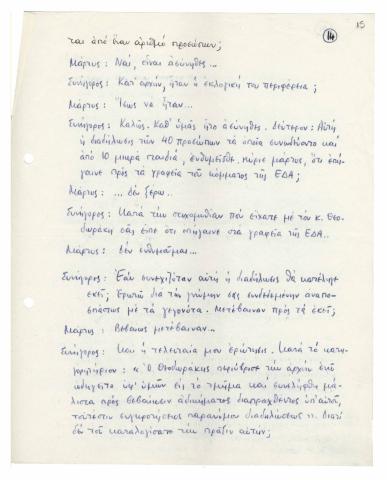 15
14
ται από έναν αριθμό προσώπων;
Μάρτυς: Ναί, είναι ἀσύνηθες...
Συνήγορος: Κατ' ἀρχήν, ἦταν ἡ ἐκλογική του περιφέρεια;
Μάρτυς: Ἴσως να ἦταν...
Συνήγορος: Καλῶς. Καθ' ὑμᾶς ἦτο ἀσύνηθες. Δεύτερον: Αὐτή
ἡ διαδήλωσις τῶν 40 προσώπων τα ὁποῖα συνωδεύοντο καί
ἀπό 10 μικρά παιδιά, ἐνθυμεῖσθε, κύριε μάρτυς, ὅτι ἐπή-
γαινε πρός τα γραφεῖα τοῦ κόμματος τῆς ΕΔΑ;
Μάρτυς: ... Δέν ξέρω..
Συνήγορος: Κατά τήν στιχομυθίαν πού εἴχατε με τόν κ. Θεο-
δωράκη σᾶς εἶπε ὅτι ἐπήγαινε στα γραφεῖα τῆς ΕΔΑ..
Μάρτυς: Δέν ἐνθυμοῦμαι...
Συνήγορος: Ἐάν συνεχιζόταν αὐτή ἡ διαδήλωσις θά κατέληγε
ἐκεῖ; Ἐρωτῶ διά τήν γνώμην σας συνδεδεμένην αναπο-
σπάστως με τά γεγονότα. Μετέβαιναν πρός τά ἐκεῖ;
Μάρτυς: Βεβαίως μετέβαιναν...
Συνήγορος: Καί ἡ τελευταία μου ἐρώτησις. Κατά τό κατη-
γορητήριον: «Ὁ Θεοδωράκης περιύβρισε τήν ἀρχήν ἐνῶ
ὡδηγεῖτο ὑφ' ὑμῶν εἰς τό τμῆμα καί συνελήφθη μά-
λιστα πρός βεβαίωσιν ἀδικήματος διαπραχθέντος ὑπ' αὐτοῦ,
τοὐτέστιν συγκροτήσεως παρανόμου διαδηλώσεως». Διατί
δέν τοῦ καταλογίσατε τήν πρᾶξιν αὐτήν;